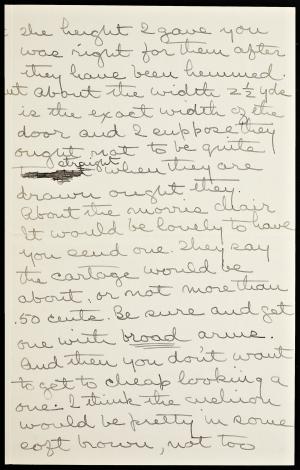 the height I gave you
was right for them after
they have been hemmed.
ut about the width 2½ yds
is the exact width of the
door and I suppose they
ought not to be quite
straight
when they are
drawn ought they.
About the morris chair
It would be lovely to have
you send one. They say
the cartage would be
about, or not more than
.50 cents. Be sure and get
one with broad arms.
And then you don't want
to get to cheap looking a
one. I think the cushion
would be pretty in some
soft brown, not too